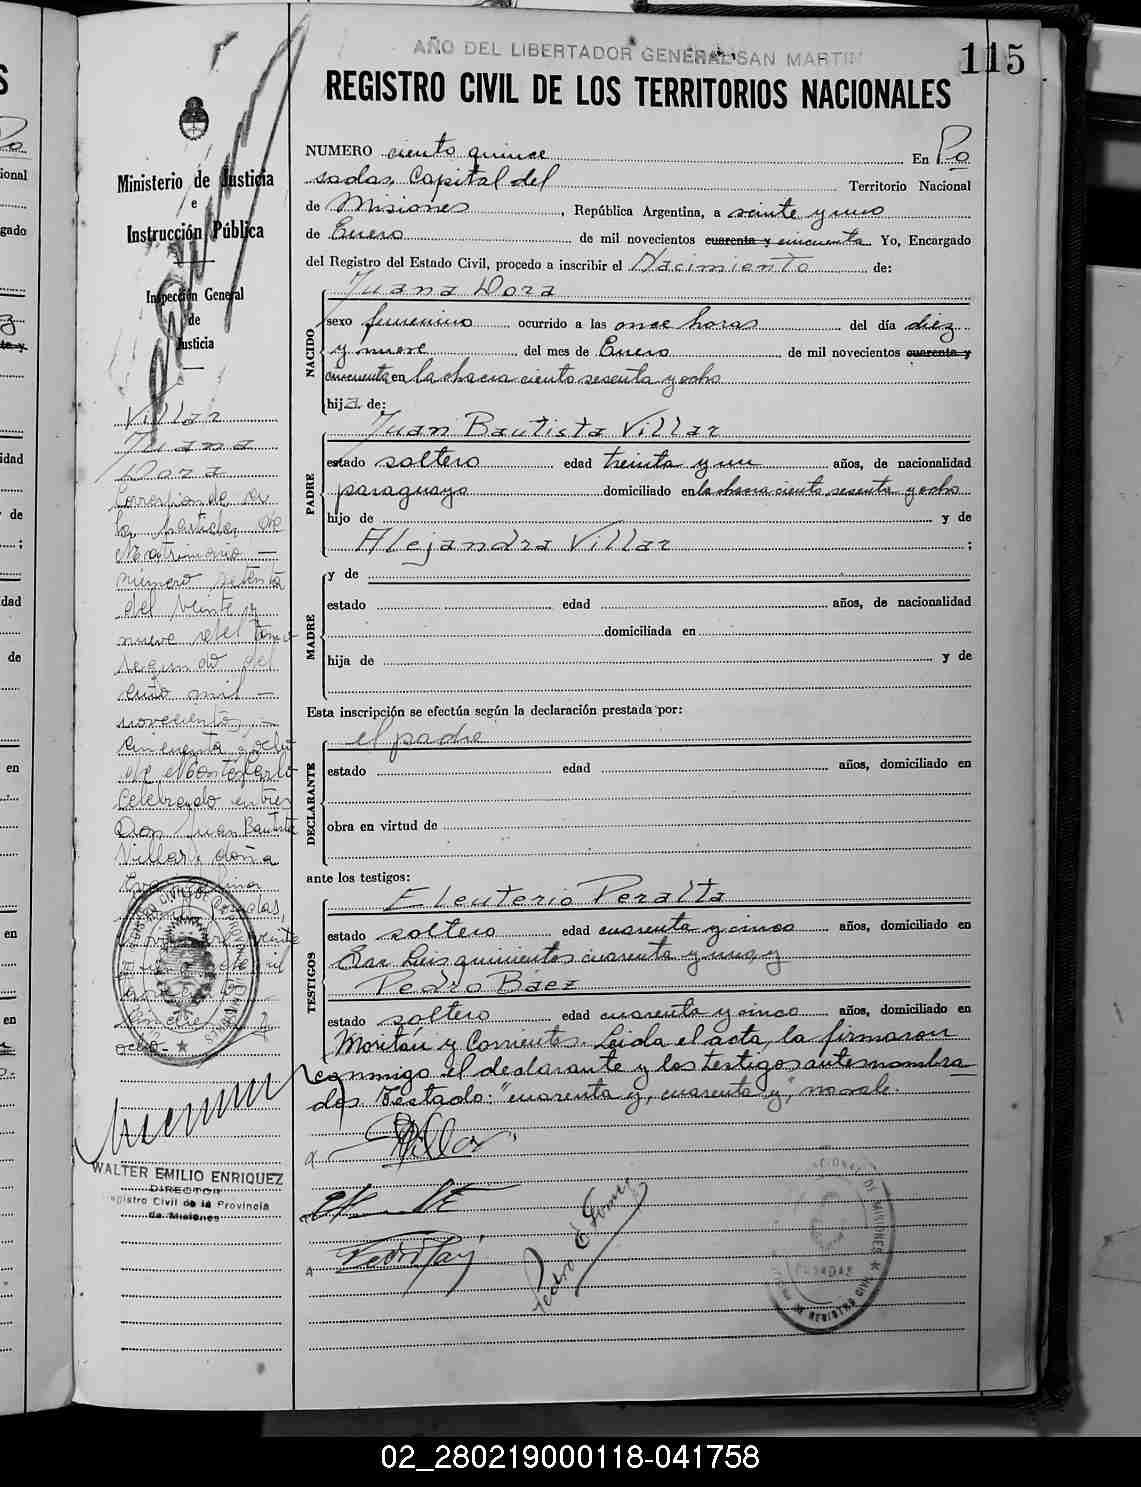 AÑO DEL LIBERTADOR GENERAL SAN MARTIN
115
REGISTRO CIVIL DE LOS TERRITORIOS NACIONALES
NUMERO ciento quince En Po
sadas, Capital del Territorio Nacional
de Misiones, República Argentina, a veinte y uno
de Enero de mil novecientos cuarenta y cincuenta Yo, Encargado
del Registro del Estado Civil, procedo a inscribir el Nacimiento de:
NACIDO
Juana Dora
sexo femenino ocurrido a las once horas del día diez
y nueve del mes de Enero de mil novecientos cuarenta y
cincuenta en la chacra ciento sesenta y ocho
hija de:
PADRE
Juan Bautista Villar
estado soltero edad treinta y un años, de nacionalidad
paraguayo domiciliado en la chacra ciento sesenta y ocho
hijo de y de
Alejandra Villar ;
MADRE
y de
estado edad años, de nacionalidad
domiciliada en
hija de y de
Esta inscripción se efectúa según la declaración prestada por:
DECLARANTE
el padre
estado edad años, domiciliado en
obra en virtud de
ante los testigos:
TESTIGOS
Eleuterio Peralta
estado soltero edad cuarenta y cinco años, domiciliado en
San Luis quinientos cuarenta y uno, y
Pedro Báez
estado soltero edad cuarenta y cinco años, domiciliado en
Moritán y Corrientes. Leida el acta, la firmaron
conmigo el declarante y los testigos antenombra
dos. Testado: "cuarenta y, cuarenta y", no vale.
Villar
Pedro Baez
Pedro E Gomez
Ministerio de Justicia
e
Instrucción Pública
Inspección General
de
Justicia
Villar
Juana
Dora
Corresponde a
la partida de
Matrimonio —
número setenta
del veinte y
nueve del tomo
segundo del
año mil —
novecientos —
cincuenta y ocho
de
Celebrado entre
Don Juan Bautista
Villar y doña
Posadas,
ocho.
WALTER EMILIO ENRIQUEZ
DIRECTOR
Registro Civil de la Provincia
de Misiones
MISIONES
POSADAS
REGISTRO CIVIL
02_280219000118-041758